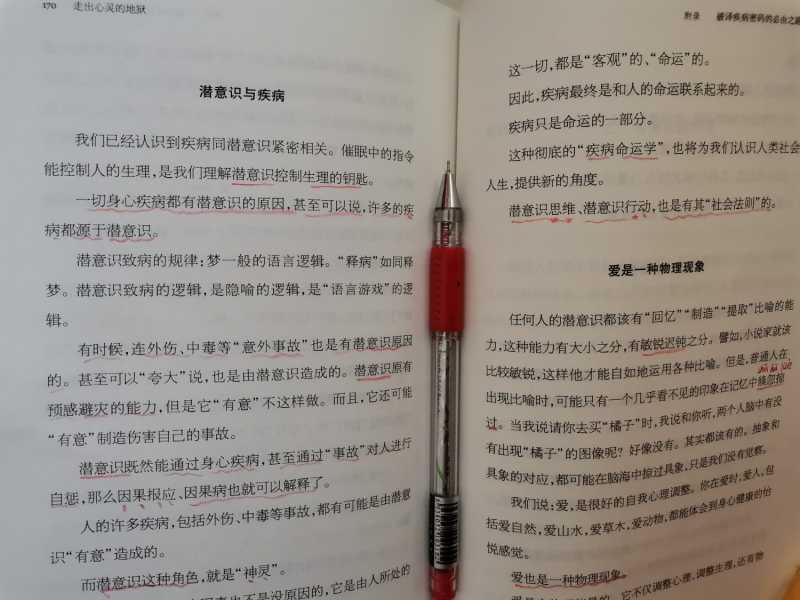 170 走出心灵的地狱
潜意识与疾病
我们已经认识到疾病同潜意识紧密相关。催眠中的指令
能控制人的生理，是我们理解潜意识控制生理的钥匙。
一切身心疾病都有潜意识的原因，甚至可以说，许多的疾
病都源于潜意识。
潜意识致病的规律：梦一般的语言逻辑。“释病”如同释
梦。潜意识致病的逻辑，是隐喻的逻辑，是“语言游戏”的逻
辑。
有时候，连外伤、中毒等“意外事故”也是有潜意识原因
的。甚至可以“夸大”说，也是由潜意识造成的。潜意识原有
预感避灾的能力，但是它“有意”不这样做。而且，它还可能
“有意”制造伤害自己的事故。
潜意识既然能通过身心疾病，甚至通过“事故”对人进行
自惩，那么因果报应、因果病也就可以解释了。
人的许多疾病，包括外伤、中毒等事故，都有可能是由潜意
识“有意”造成的。
而潜意识这种角色，就是“神灵”。
不是没原因的，它是由人所处的
附录 破译疾病密码的必由之路
这一切，都是“客观”的、“命运”的。
因此，疾病最终是和人的命运联系起来的。
疾病只是命运的一部分。
这种彻底的“疾病命运学”，也将为我们认识人类社会
人生，提供新的角度。
潜意识思维、潜意识行动，也是有其“社会法则”的。
爱是一种物理现象
任何人的潜意识都该有“回忆”“制造”“提取”比喻的能
力，这种能力有大小之分，有敏锐迟钝之分。譬如，小说家就该
比较敏锐，这样他才能自如地运用各种比喻。但是，普通人在
出现比喻时，可能只有一个几乎看不见的印象在记忆中倏忽掠
过。当我说请你去买“橘子”时，我说和你听，两个人脑中有没
有出现“橘子”的图像呢？好像没有。其实都该有的。抽象和
具象的对应，都可能在脑海中掠过具象，只是我们没有觉察。
我们说：爱，是很好的自我心理调整。你在爱时，爱人，包
括爱自然，爱山水，爱草木，爱动物，都能体会到身心健康的怡
悦感觉。
爱也是一种物理现象。
它不仅调整心理，调整生理，还有物